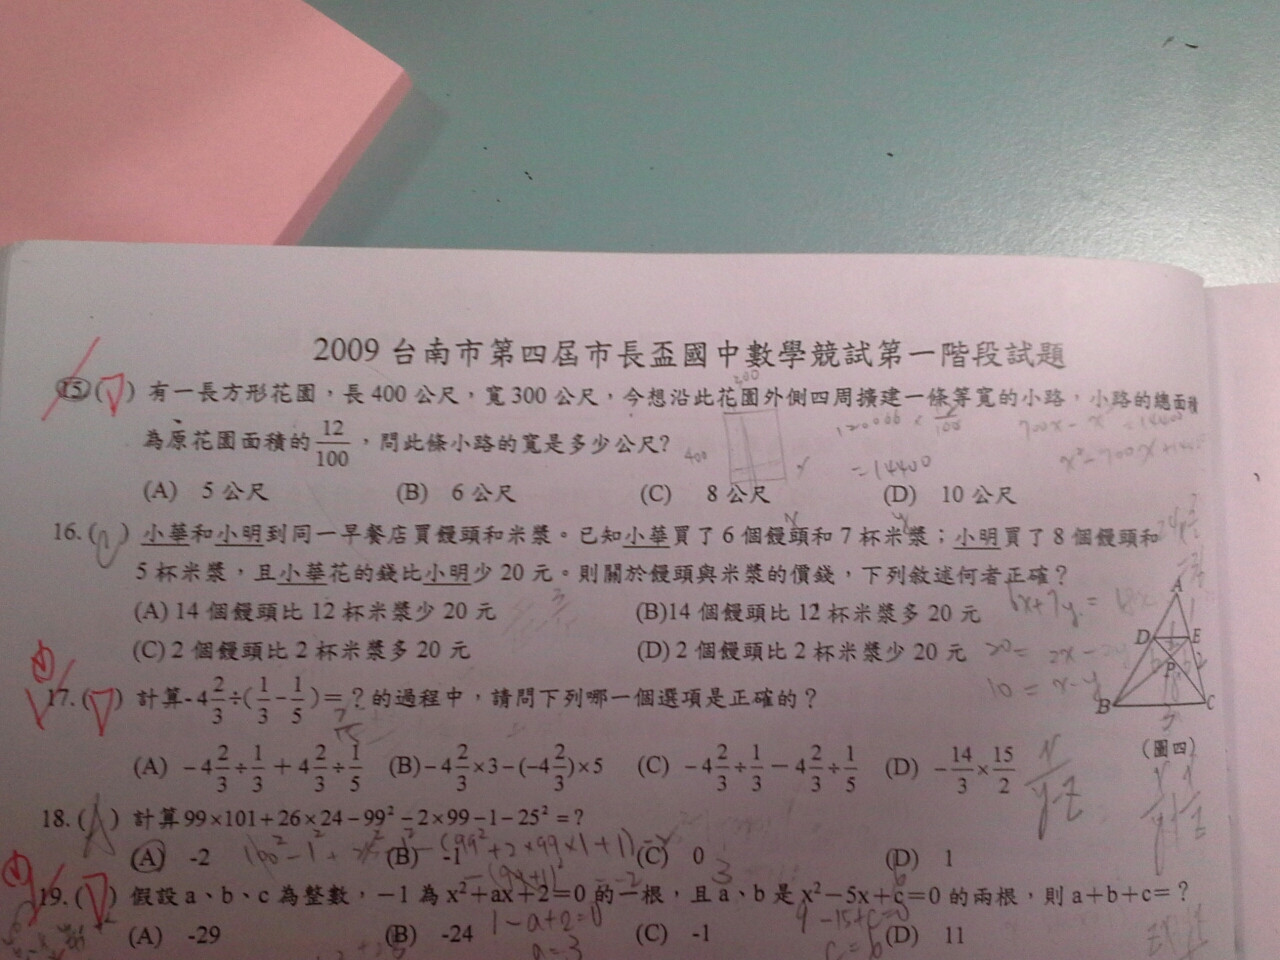 2009 台南市第四屆市長盃國中數學競試第一階段試題
15.( ) 有一長方形花園，長 400 公尺，寬 300 公尺，今想沿此花園外側四周擴建一條等寬的小路，小路的總面積
為原花園面積的 12/100，問此條小路的寬是多少公尺?
(A) 5 公尺 (B) 6 公尺 (C) 8 公尺 (D) 10 公尺
16.( ) 小華和小明到同一早餐店買饅頭和米漿。已知小華買了 6 個饅頭和 7 杯米漿；小明買了 8 個饅頭和
5 杯米漿，且小華花的錢比小明少 20 元。則關於饅頭與米漿的價錢，下列敘述何者正確？
(A) 14 個饅頭比 12 杯米漿少 20 元 (B)14 個饅頭比 12 杯米漿多 20 元
(C) 2 個饅頭比 2 杯米漿多 20 元 (D) 2 個饅頭比 2 杯米漿少 20 元
17.( ) 計算-4 2/3÷(1/3-1/5)=？的過程中，請問下列哪一個選項是正確的？
(A) -4 2/3÷1/3+4 2/3÷1/5 (B)-4 2/3×3-(-4 2/3)×5 (C) -4 2/3÷1/3-4 2/3÷1/5 (D) -14/3×15/2
(圖四)
A
D E
P
B C
18.(A) 計算99×101+26×24-99²-2×99-1-25²=？
(A) -2 (B) -1 (C) 0 (D) 1
19.( ) 假設 a、b、c 為整數，-1 為 x²+ax+2=0 的一根，且 a、b 是 x²-5x+c=0 的兩根，則 a+b+c=？
(A) -29 (B) -24 (C) -1 (D) 11
300
400
=14400
6x+7y=
10=x-y
1-a+2=0
a=3
c=6